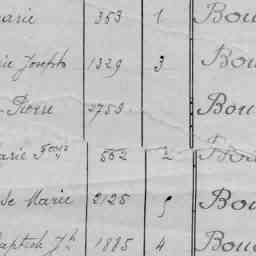 arie 353 1 Bou
ie Joseph 1329 3 Bou
Pierre 2759 Bou
arie 552 2
de Marie 2125 5 Bou
aptiste Jh 1885 4 Bou